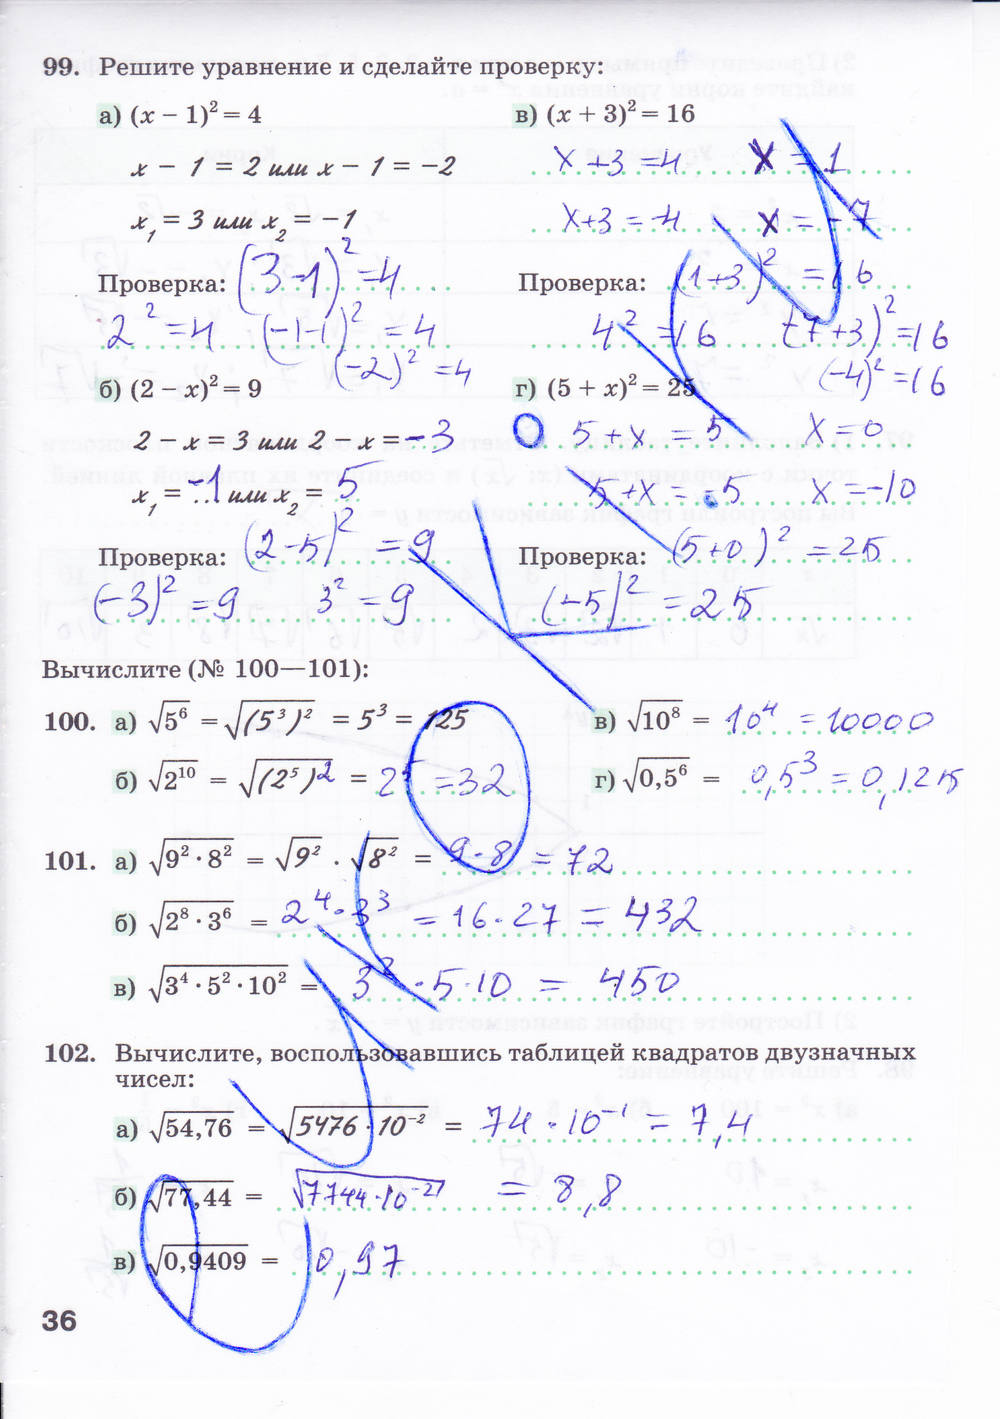 99. Решите уравнение и сделайте проверку:
а) (x − 1)² = 4
x − 1 = 2 или x − 1 = −2
x₁ = 3 или x₂ = −1
Проверка: (3−1)² = 4
2² = 4 (−1−1)² = 4
(−2)² = 4
б) (2 − x)² = 9
2 − x = 3 или 2 − x = −3
x₁ = −1 или x₂ = 5
Проверка: (2−5)² = 9
(−3)² = 9 3² = 9
в) (x + 3)² = 16
x + 3 = 4 x = 1
x + 3 = −4 x = −7
Проверка: (1+3)² = 16
4² = 16 (−7+3)² = 16
(−4)² = 16
г) (5 + x)² = 25
5 + x = 5 x = 0
5 + x = −5 x = −10
Проверка: (5+0)² = 25
(−5)² = 25
Вычислите (№ 100—101):
100. а) √5⁶ = √(5³)² = 5³ = 125
б) √2¹⁰ = √(2⁵)² = 2⁵ = 32
в) √10⁸ = 10⁴ = 10000
г) √0,5⁶ = 0,5³ = 0,125
101. а) √9² · 8² = √9² · √8² = 9 · 8 = 72
б) √2⁸ · 3⁶ = 2⁴ · 3³ = 16 · 27 = 432
в) √3⁴ · 5² · 10² = 3² · 5 · 10 = 450
102. Вычислите, воспользовавшись таблицей квадратов двузначных
чисел:
а) √54,76 = √5476 · 10⁻² = 74 · 10⁻¹ = 7,4
б) √77,44 = √7744 · 10⁻² = 8,8
в) √0,9409 = 0,97
36